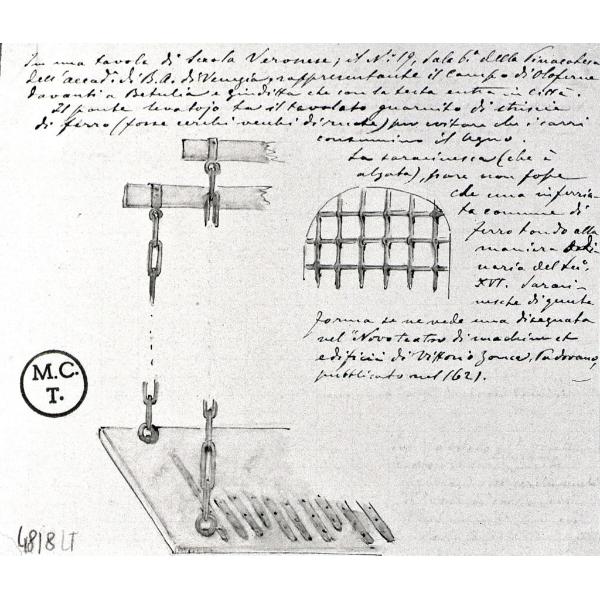 In una tavola di Scuola Veronese, il N.° 19, Sala 6ª della Pinacoteca
dell'accad.ª di B. A. di Venezia rappresentante il campo di Oloferne
davanti a Betulia e Giuditta che con la testa entra in città.
Il ponte levatojo ha il tavolato guarnito di striscie
di ferro (forse cerchi vecchi di ruote) per evitare che i carri
consumino il legno.
La saracinesca (che è
alzata), pare non fosse
che una inferria-
ta comune di
ferro tondo alla
maniera ordi-
naria del sec.°
XVI. Saraci-
nesche di queste
forma se ne vede una disegnata
nel "Novo teatro di machine et
edificii di Vittorio Zonca, Padovano,
pubblicato nel 1621.
M.C.
T.
48/8 LT